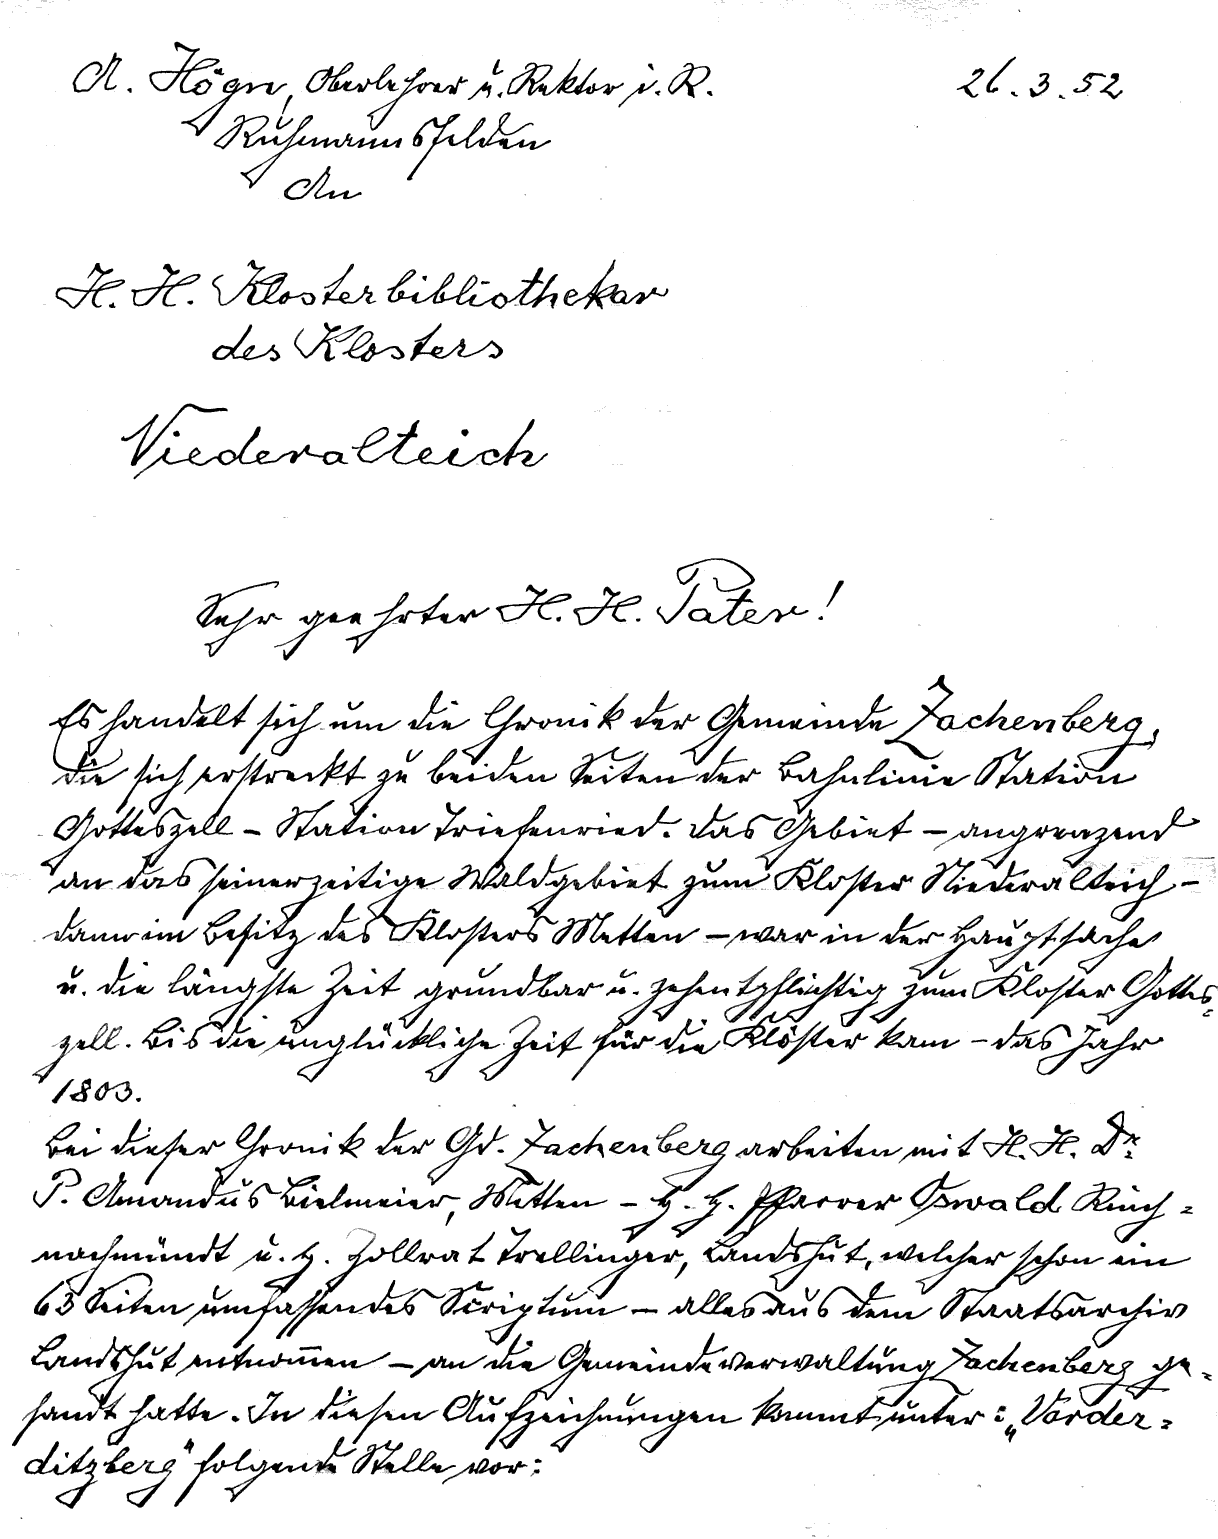 A. Högn, Oberlehrer u. Rektor i. R. 26.3.52
Ruhmannsfelden
An
H. H. Klosterbibliothekar
des Klosters
Niederalteich
Sehr geehrter H. H. Pater!
Es handelt sich um die Chronik der Gemeinde Zachenberg,
die sich erstreckt zu beiden Seiten der Bahnlinie Station
Gotteszell – Station Triefenried. Das Gebiet – angrenzend
an das seinerzeitige Waldgebiet zum Kloster Niederalteich –
dann im Besitz des Klosters Metten – war in der Hauptsache
u. die längste Zeit grundbar u. zehentpflichtig zum Kloster Gottes=
zell. Bis die unglückliche Zeit für die Klöster kam – das Jahr
1803.
Bei dieser Chronik der Gd. Zachenberg arbeiten mit H. H. Dr.
P. Amandus Bielmeier, Metten – H. H. Pfarrer Oswald Rinch=
nachmündt u. H. Zollrat Trellinger, Landshut, welcher schon ein
63 Seiten umfassendes Scriptum – alles aus dem Staatsarchiv
Landshut entnommen – an die Gemeindeverwaltung Zachenberg ge=
sandt hatte. In diesen Aufzeichnungen kommt unter: „Vorder=
ditzberg" folgende Stelle vor: